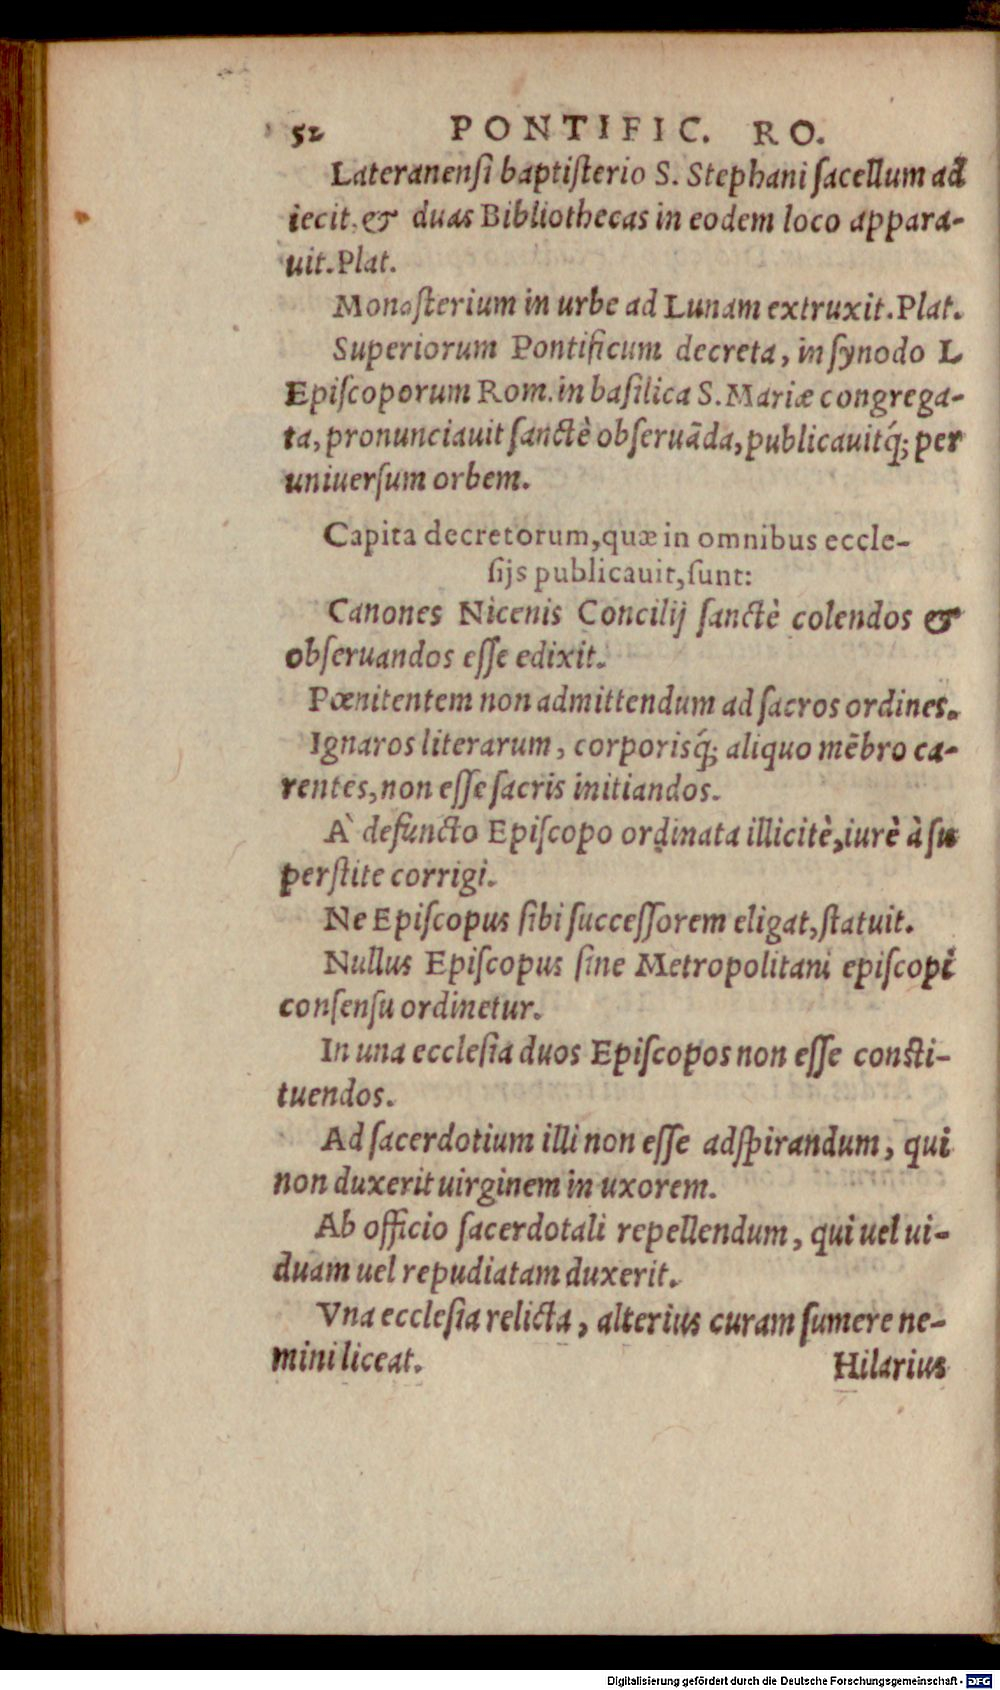 52 PONTIFIC. RO.
Lateranensi baptiſterio S. Stephani ſacellum ad
iecit, & duas Bibliothecas in eodem loco appara-
uit. Plat.
Monaſterium in urbe ad Lunam extruxit. Plat.
Superiorum Pontificum decreta, in ſynodo L
Epiſcoporum Rom. in baſilica S. Mariæ congrega-
ta, pronunciauit ſanctè obſeruãda, publicauitq́; per
uniuerſum orbem.
Capita decretorum, quæ in omnibus eccle-
ſijs publicauit, ſunt:
Canones Nicenis Concilij ſanctè colendos &
obſeruandos eſſe edixit.
Pœnitentem non admittendum ad ſacros ordines.
Ignaros literarum, corporisq́; aliquo mẽbro ca-
rentes, non eſſe ſacris initiandos.
À defuncto Epiſcopo ordinata illicitè, iurè à ſu
perſtite corrigi.
Ne Epiſcopus ſibi ſucceſſorem eligat, ſtatuit.
Nullus Epiſcopus ſine Metropolitani epiſcopi
conſenſu ordinetur.
In una eccleſia duos Epiſcopos non eſſe conſti-
tuendos.
Ad ſacerdotium illi non eſſe adſpirandum, qui
non duxerit uirginem in uxorem.
Ab officio ſacerdotali repellendum, qui uel ui-
duam uel repudiatam duxerit.
Vna eccleſia relicta, alterius curam ſumere ne-
mini liceat. Hilarius
Digitalisierung gefördert durch die Deutsche Forschungsgemeinschaft - DFG